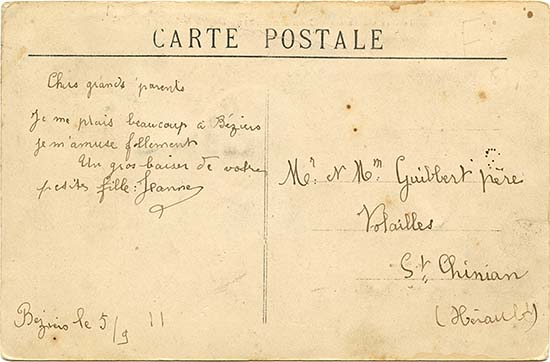 CARTE POSTALE
Chers grands parents
Je me plais beaucoup à Béziers
je m'amuse follement
Un gros baiser de votre
petites fille: Jeanne
Béziers le 5/9 11
Mr. et Mm Guibbert père
Volailles
St. Chinian
(Hérault)